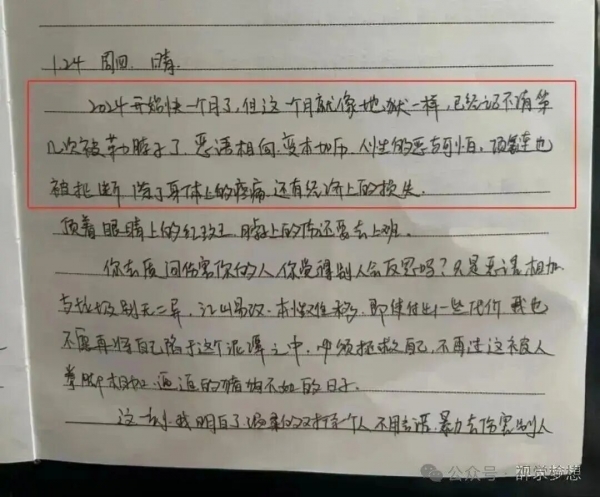 1.24 周四 晴
2024开始快一个月了,但这一个月就像地狱一样,已经记不清第
几次被掐脖子了.恶语相向.变本加厉.人性的恶与可怕.项链也
被扯断.除了身体上的疼痛.还有经济上的损失.
顶着眼睛上的红斑.脖子上的伤还要去上班.
你去质问伤害你的人你觉得别人会反思吗?只是恶语相加
与垃圾别无二异,江山易改.本性难移.即使付出一些代价 我也
不愿再将自己陷于这个泥潭之中.必须拯救自己,不再过这被人
拳脚相加 的猪狗不如的日子.
这一刻我明白了 温柔的对待一个人 不用言语 暴力去伤害别人
公众号·